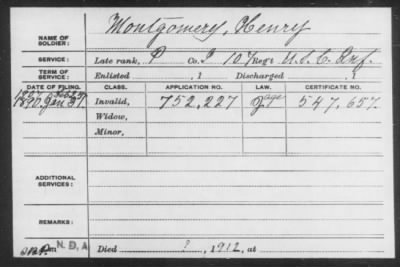 NAME OF SOLDIER: Montgomery, Henry
SERVICE: Late rank, P Co. I 107 Reg't U.S.C. Inf.
TERM OF SERVICE: Enlisted , 1 Discharged , 1
DATE OF FILING. CLASS. APPLICATION NO. LAW. CERTIFICATE NO.
1890 Jan 31 Invalid, 752,227 547,657.
Widow,
Minor,
ADDITIONAL SERVICES:
REMARKS:
N.D.A Died ? , 1912, at